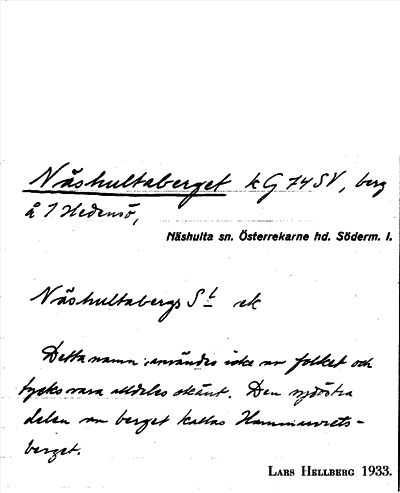 Näshultaberget kG 74 SV, berg
å 7 Hedensö,
Näshulta sn. Österrekarne hd. Söderm. l.
Näshultabergs St ek
Detta namn användes icke av folket och
tycks vara alldeles okänt. Den sydöstra
delen av berget kallas Hammarrets-
berget.
LARS HELLBERG 1933.